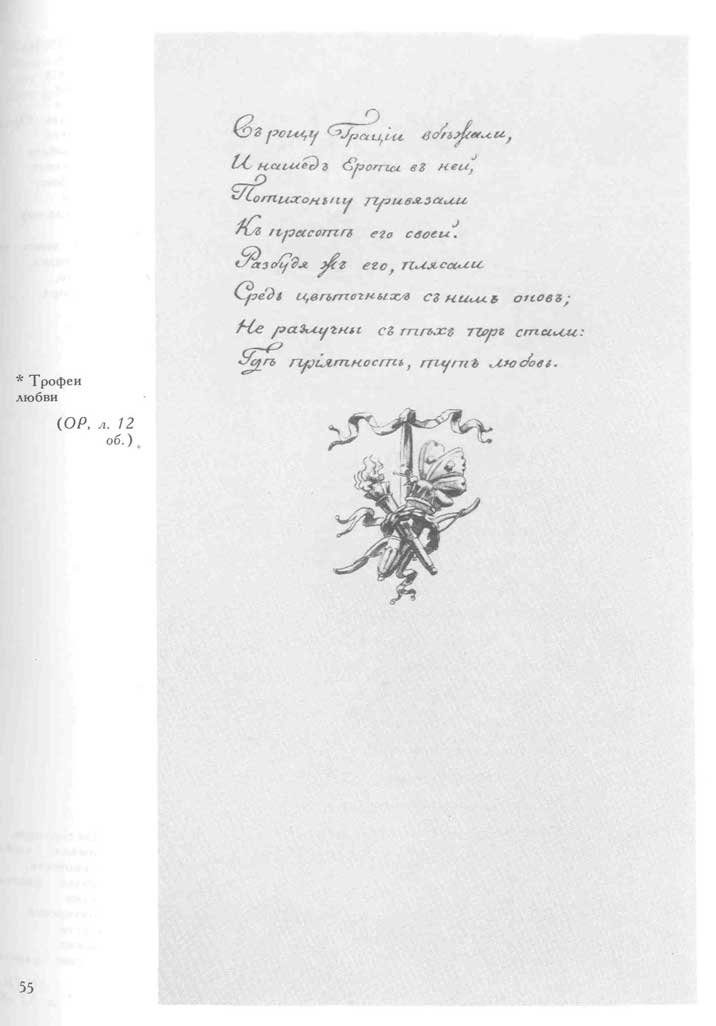 Въ рощу Граціи вбѣжали,
И нашедъ Ерота въ ней,
Потихоньку привязали
Къ красотѣ его своей.
Разбудя жъ его, плясали
Средь цвѣточныхъ съ нимъ оковъ;
Не разлучны съ тѣхъ поръ стали:
Гдѣ пріятность, тутъ любовь.
* Трофеи
любви
(ОР, л. 12
об.)
55